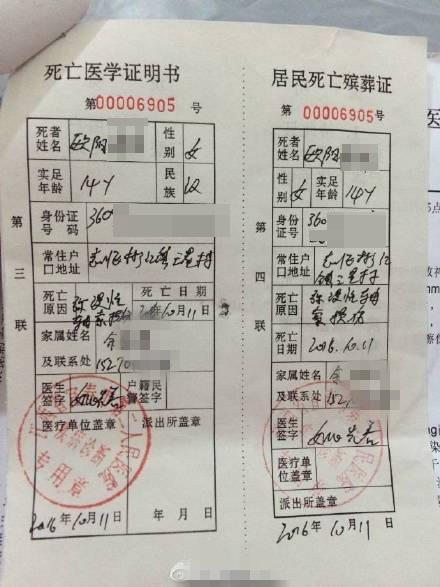 死亡医学证明书
第00006905号
死者姓名 欧阳
性别 女
实足年龄 14Y
民族 汉
身份证号码 360
常住户口地址
死亡原因 弥漫性轴索损伤
死亡日期 2016.10.11日
家属姓名及联系处
1527
医生签字
户籍民警签字
医疗单位盖章
派出所盖章
2016年10月11日
年月日
第三联
居民死亡殡葬证
第00006905号
死者姓名 欧阳
性别 女
实足年龄 14Y
身份证号码 360
常住户口地址
死亡原因 弥漫性轴索损伤
死亡日期 2016.10.11
家属姓名及联系处
152
医生签字
医疗单位盖章
派出所盖章
2016年10月11日
第四联
人民医院
专用章